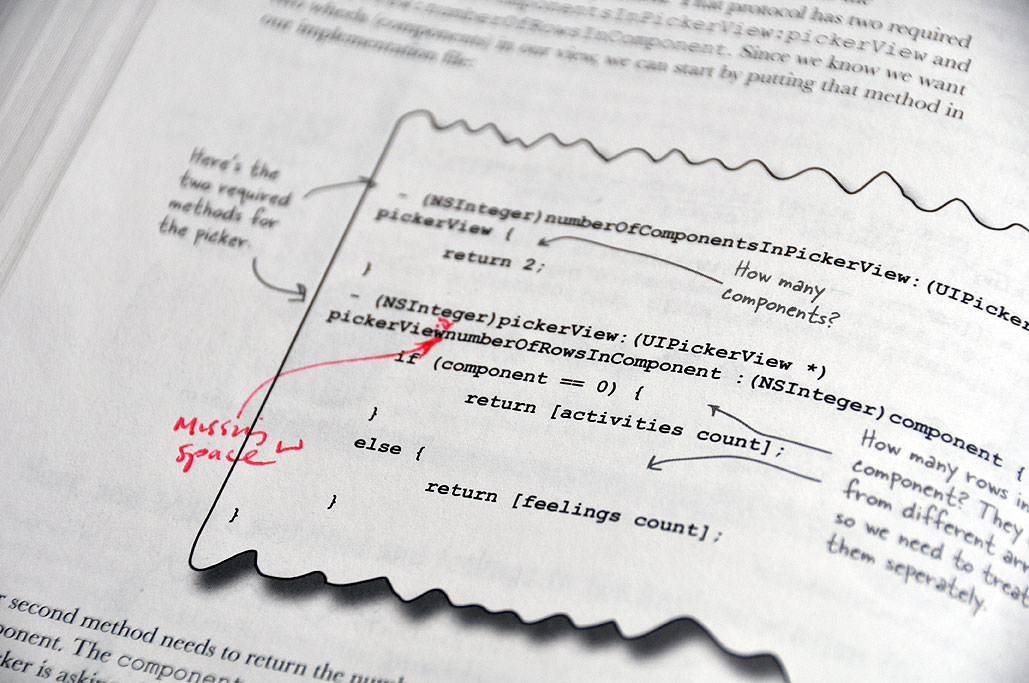 That protocol has two required
numberOfComponentsInPickerView:pickerView and
numberOfRowsInComponent. Since we know we want
two wheels (components) in our view, we can start by putting that method in
our implementation file:
Here's the
two required
methods for
the picker.
- (NSInteger)numberOfComponentsInPickerView:(UIPicker
pickerView {
return 2;
}
How many
components?
- (NSInteger)pickerView:(UIPickerView *)
pickerViewnumberOfRowsInComponent :(NSInteger)component {
if (component == 0) {
return [activities count];
}
else {
return [feelings count];
}
}
Missing
space
How many rows in
component? They
from different arr
so we need to treat
them seperately.
r second method needs to return the numb
ponent. The component
ker is asking